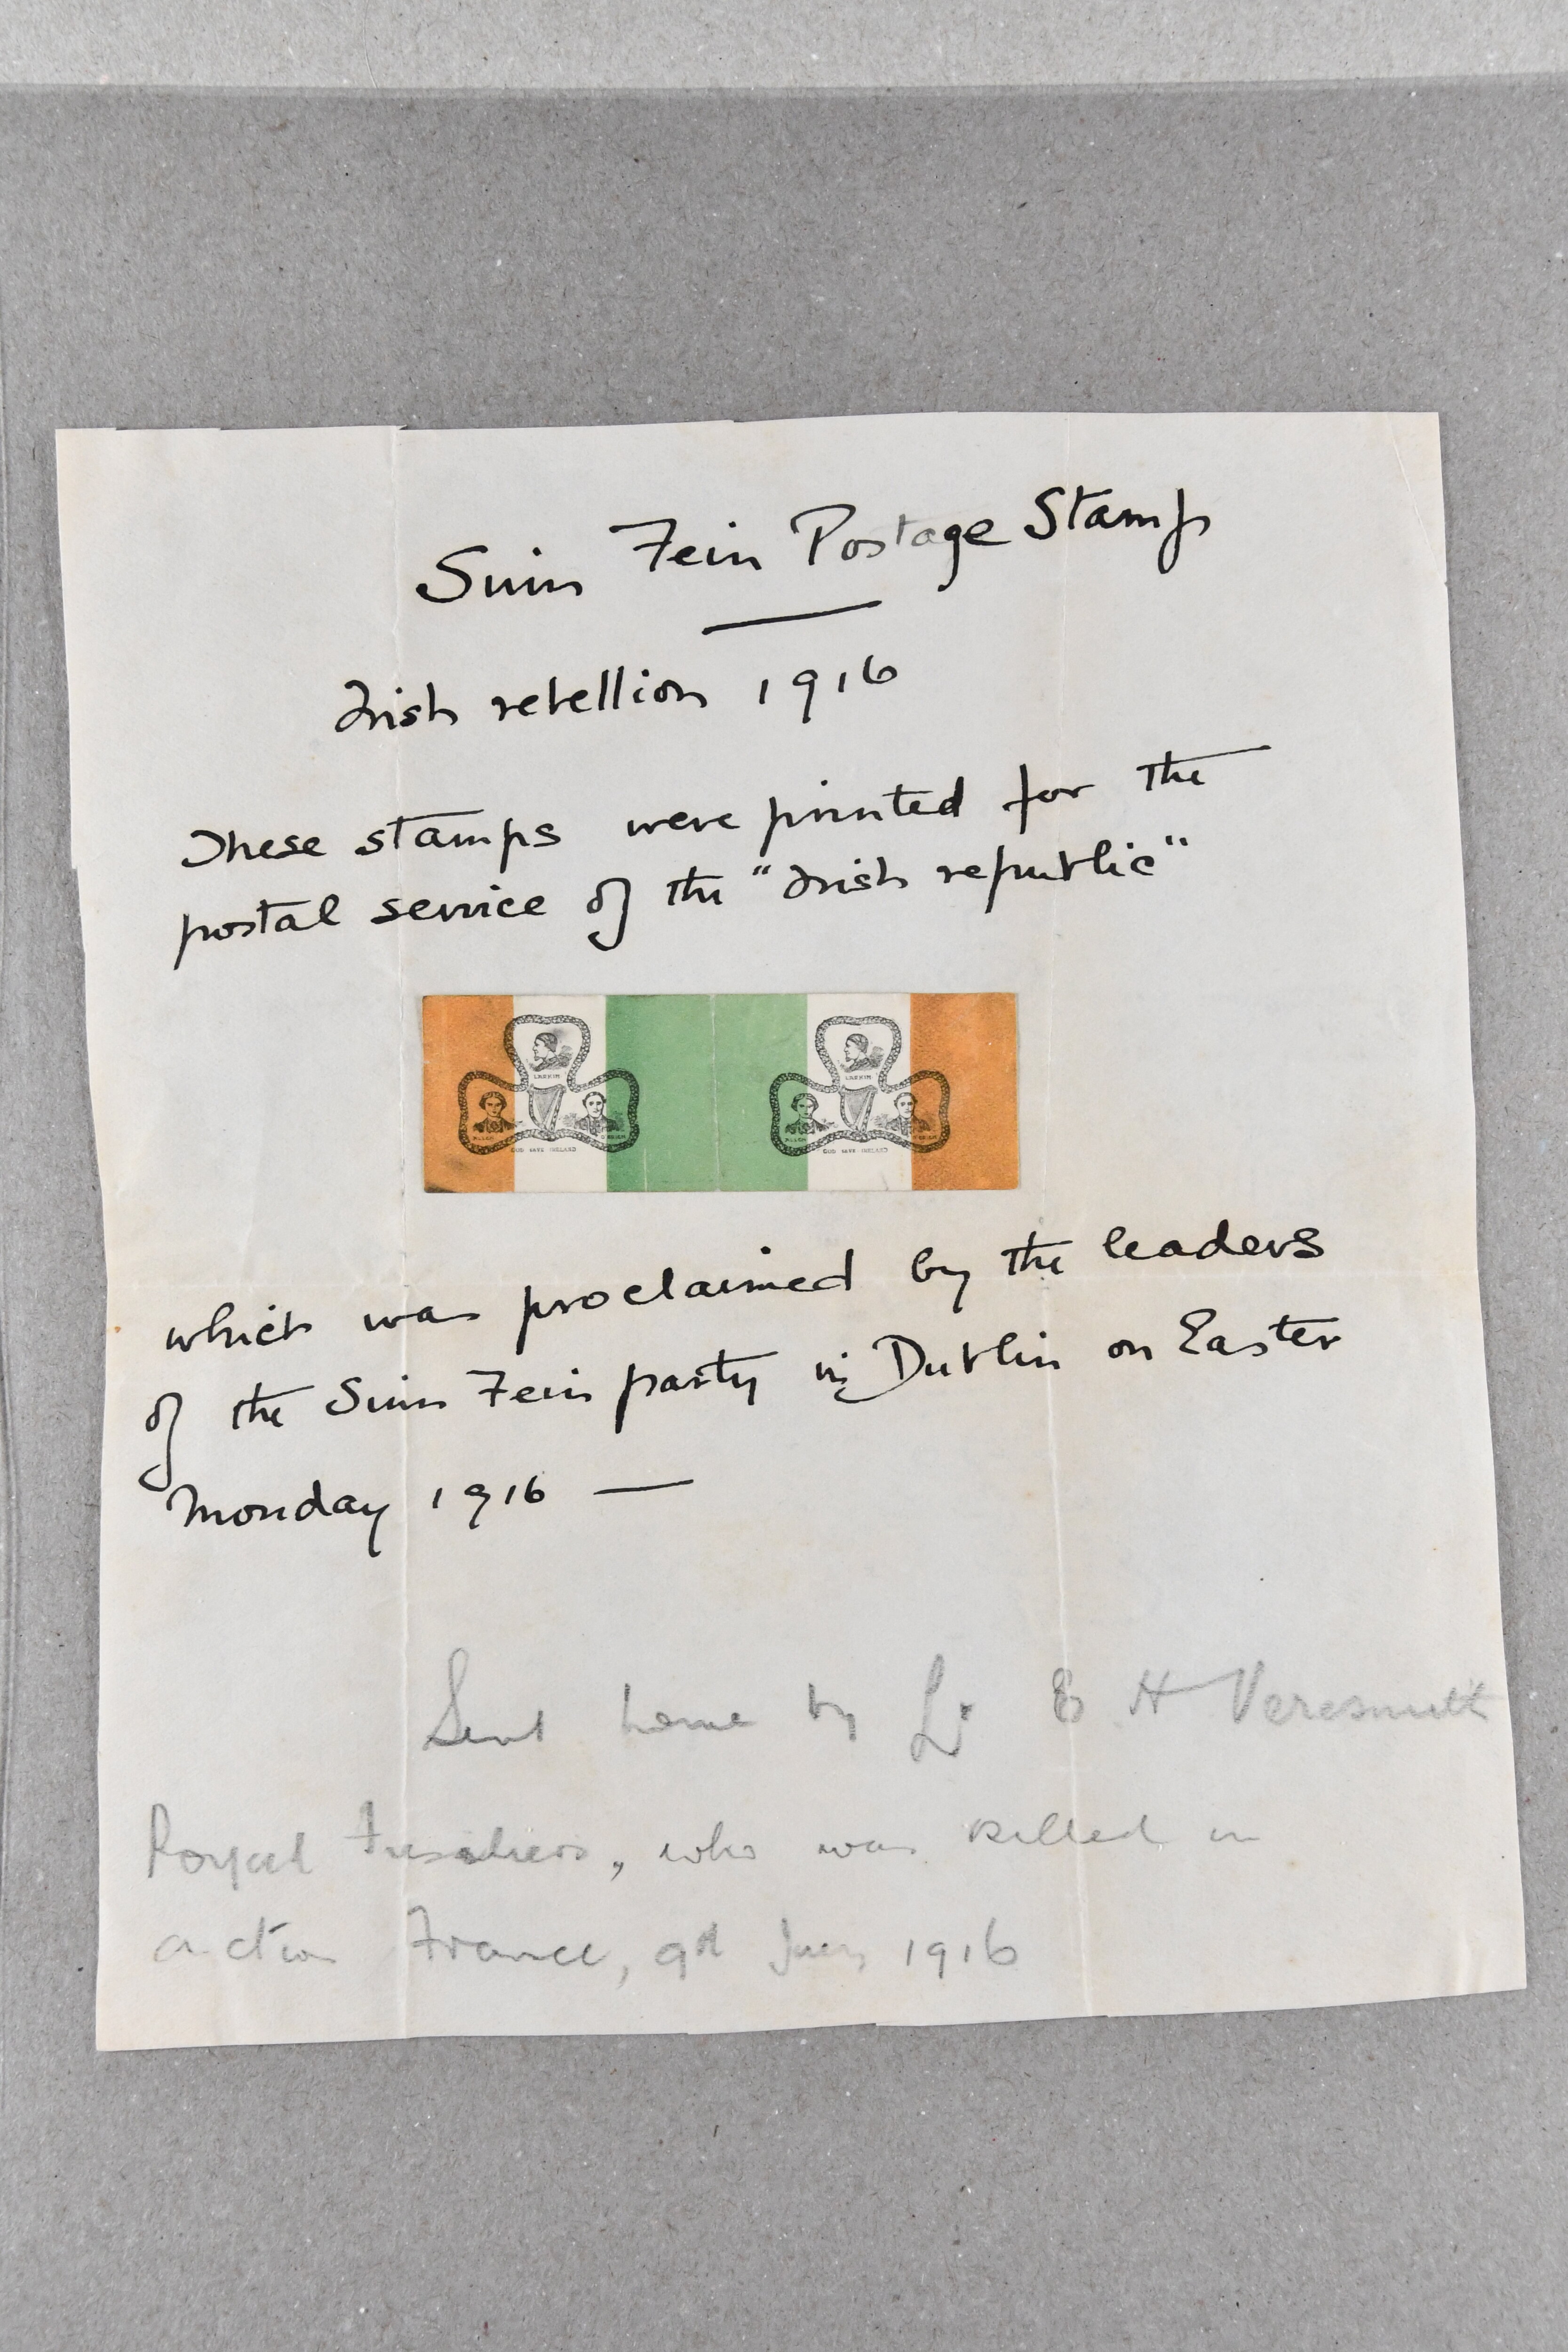 Sinn Fein Postage Stamp
Irish rebellion 1916
These stamps were printed for the
postal service of the "Irish republic"
LARKIN LARKIN
ALLEN O'BRIEN ALLEN O'BRIEN
GOD SAVE IRELAND GOD SAVE IRELAND
which was proclaimed by the leaders
of the Sinn Fein party in Dublin on Easter
Monday 1916 —
Sent home by Lt E H
Royal Fusiliers, who was killed in
action France, 9th 1916